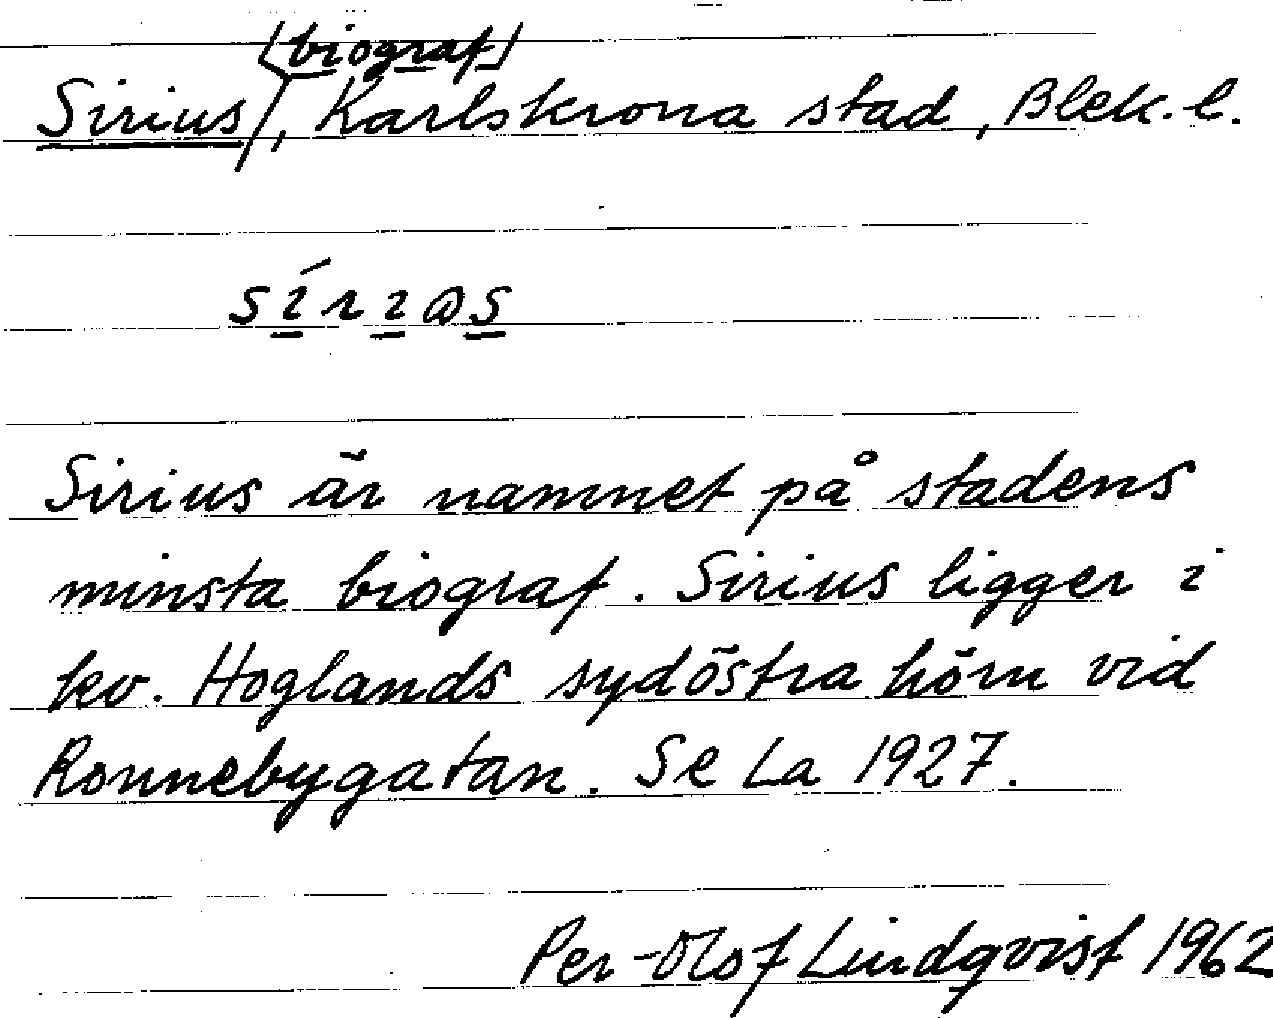 (biograf)
Sirius, Karlskrona stad, Blek. l.
sírıɷs
Sirius är namnet på stadens
minsta biograf. Sirius ligger i
kv. Hoglands sydöstra hörn vid
Ronnebygatan. Se La 1927.
Per-Olof Lindqvist 1962